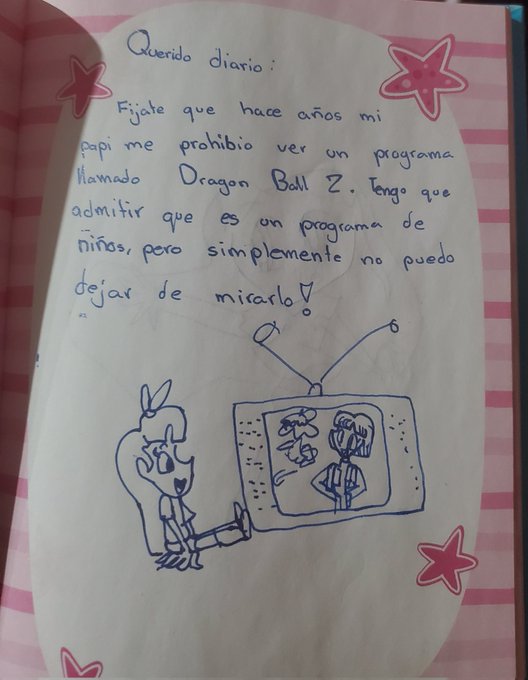 Querido diario:
Fijate que hace años mi
papi me prohibio ver un programa
llamado Dragon Ball Z. Tengo que
admitir que es un programa de
niños, pero simplemente no puedo
dejar de mirarlo!